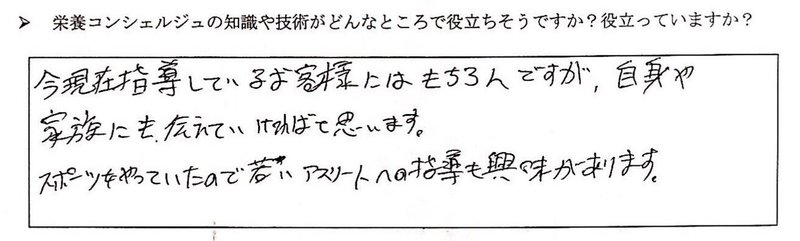 ➢ 栄養コンシェルジュの知識や技術がどんなところで役立ちそうですか？役立っていますか？
今現在指導しているお客様にはもちろんですが、自身や
家族にも伝えていければと思います。
スポーツをやっていたので若いアスリートへの指導も興味があります。